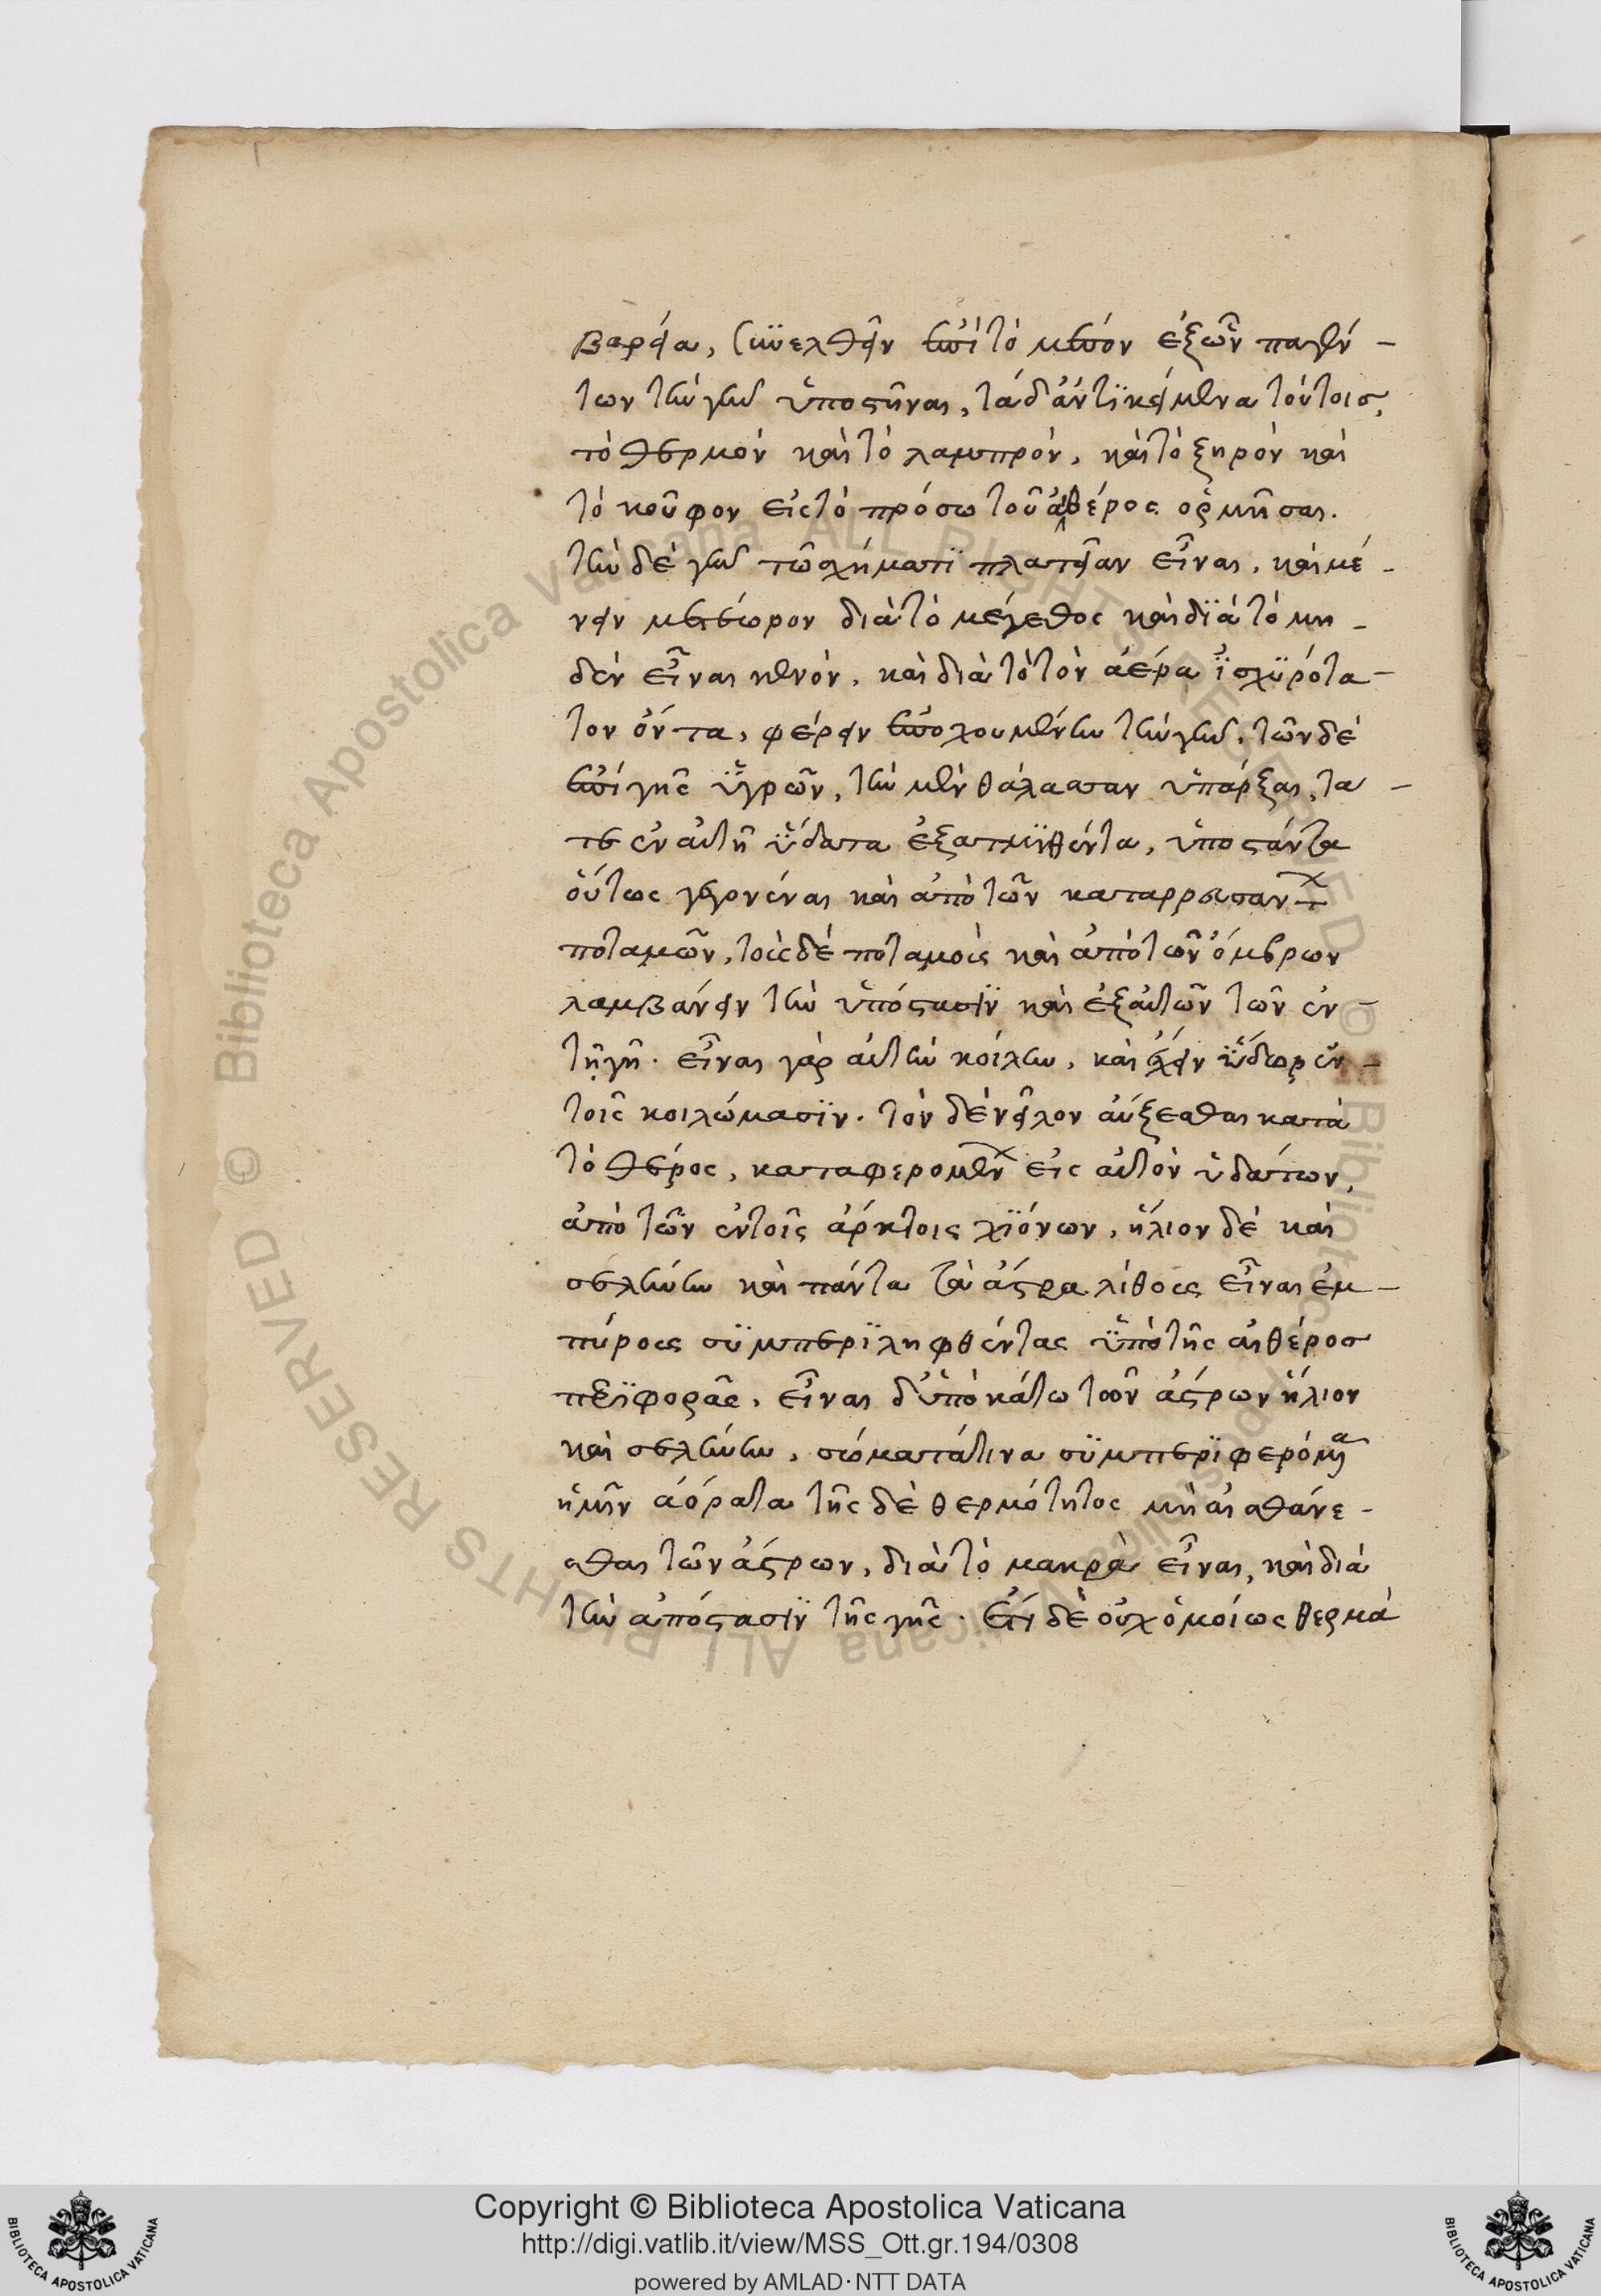 βαρέα, συνελθεῖν ἐπὶ τὸ μέσον ἐξ ὧν παγέν-
των τὴν γῆν ὑποστῆναι, τὰ δ' ἀντικείμενα τούτοις,
τὸ θερμὸν καὶ τὸ λαμπρὸν, καὶ τὸ ξηρὸν καὶ
τὸ κοῦφον εἰς τὸ πρόσω τοῦ αἰθέρος ὁρμῆσαι.
τὴν δὲ γῆν τῷ σχήματι πλατεῖαν εἶναι, καὶ μέ-
νειν μετέωρον διὰ τὸ μέγεθος καὶ διὰ τὸ μη-
δὲν εἶναι κενὸν, καὶ διὰ τὸ τὸν ἀέρα ἰσχυρότα-
τον ὄντα, φέρειν ἐποχουμένην τὴν γῆν. τῶν δὲ
ἐπὶ γῆς ὑγρῶν, τὴν μὲν θάλασσαν ὑπάρξαι, τα
τε ἐν αὐτῇ ὕδατα ἐξατμιθέντα, ὑποστάντα
οὕτως γεγονέναι καὶ ἀπὸ τῶν καταρρευσάντων
ποταμῶν, τοὺς δὲ ποταμοὺς καὶ ἀπὸ τῶν ὄμβρων
λαμβάνειν τὴν ὑπόστασιν καὶ ἐξ αὐτῶν τῶν ἐν
τῇ γῇ. εἶναι γὰρ αὐτὴν κοίλην, καὶ ἔχειν ὕδωρ ἐν
τοῖς κοιλώμασιν. τὸν δὲ νεῖλον αὔξεσθαι κατὰ
τὸ θέρος, καταφερομένων εἰς αὐτὸν ὑδάτων,
ἀπὸ τῶν ἐν τοῖς ἄρκτοις χιόνων, ἥλιον δὲ καὶ
σελήνην καὶ πάντα τὰ ἄστρα λίθους εἶναι ἐμ-
πύρους συμπεριληφθέντας ὑπὸ τῆς αἰθέρος
περιφορᾶς. εἶναι δ' ὑποκάτω τῶν ἄστρων ἥλιον
καὶ σελήνην, σώματά τινα συμπεριφερόμενα
ἡμῖν ἀόρατα τῆς δὲ θερμότητος μὴ αἰσθάνε-
σθαι τῶν ἄστρων, διὰ τὸ μακρὰ εἶναι, καὶ διὰ
τὴν ἀπόστασιν τῆς γῆς. ἔτι δὲ οὐχ ὁμοίως θερμὰ
Copyright © Biblioteca Apostolica Vaticana
http://digi.vatlib.it/view/MSS_Ott.gr.194/0308
powered by AMLAD·NTT DATA